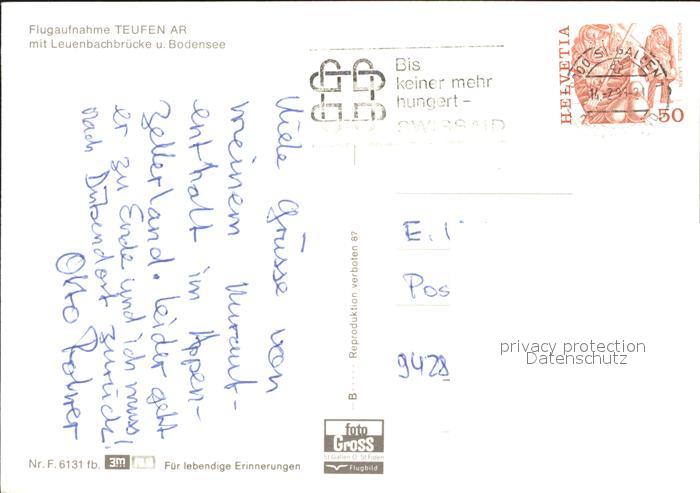 Flugaufnahme TEUFEN AR
mit Leuenbachbrücke u. Bodensee
Bis
keiner mehr
hungert –
SWISSAID
HELVETIA
50
ST. GALLEN
Viele Grüsse von
meinem
enthalt im Appen-
zellerland. Leider geht
er zu Ende und ich muss
nach Dübendorf zurück.
Otto Rohrer
B
Reproduktion verboten 87
E.
Pos
9428
privacy protection
Datenschutz
foto
GROSS
St.Gallen O. St.Fiden
Flugbild
Nr. F. 6131 fb.
3M
Für lebendige Erinnerungen